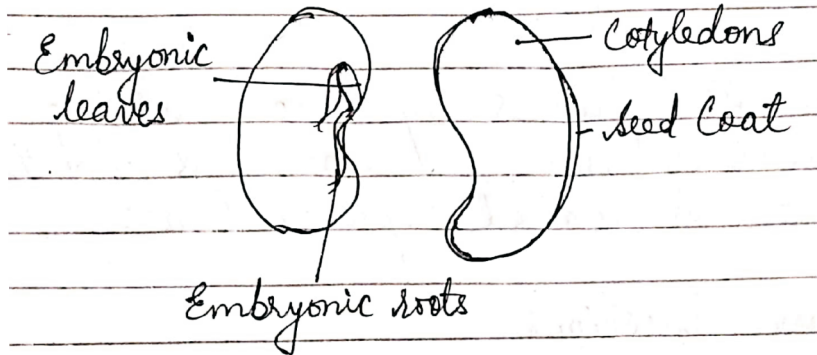 Embryonic
leaves
Cotyledons
Seed Coat
Embryonic roots